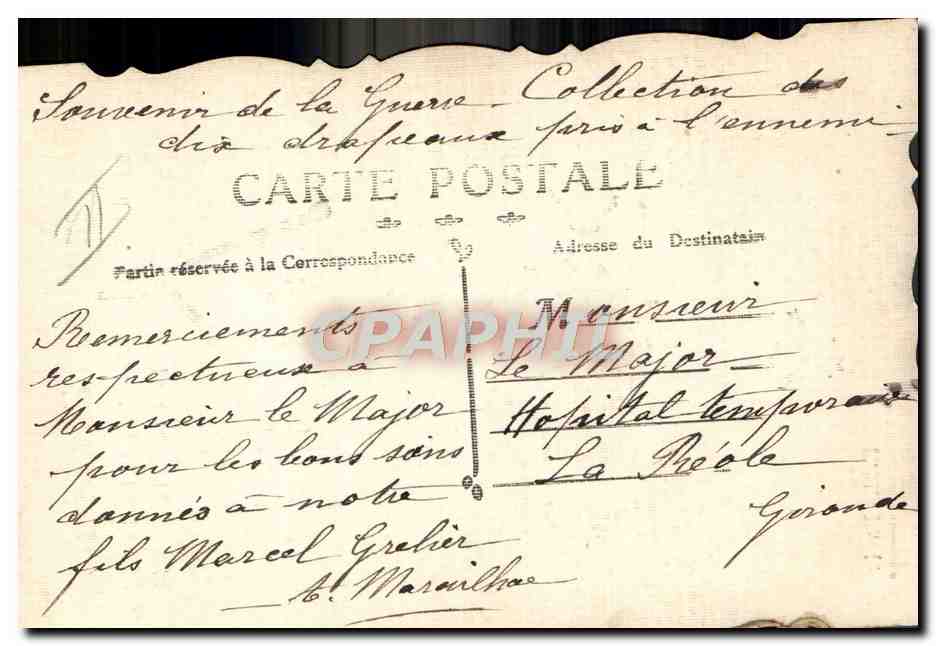 Souvenir de la Guerre - Collection des
dix drapeaux pris à l'ennemi
CARTE POSTALE
Partie réservée à la Correspondance
Adresse du Destinataire
Remerciements
respectueux à
Monsieur le Major
pour les bons soins
donnés à notre
fils Marcel Grelier
Monsieur
Le Major
Hopital temporaire
La Réole
Gironde
CPAPHIL